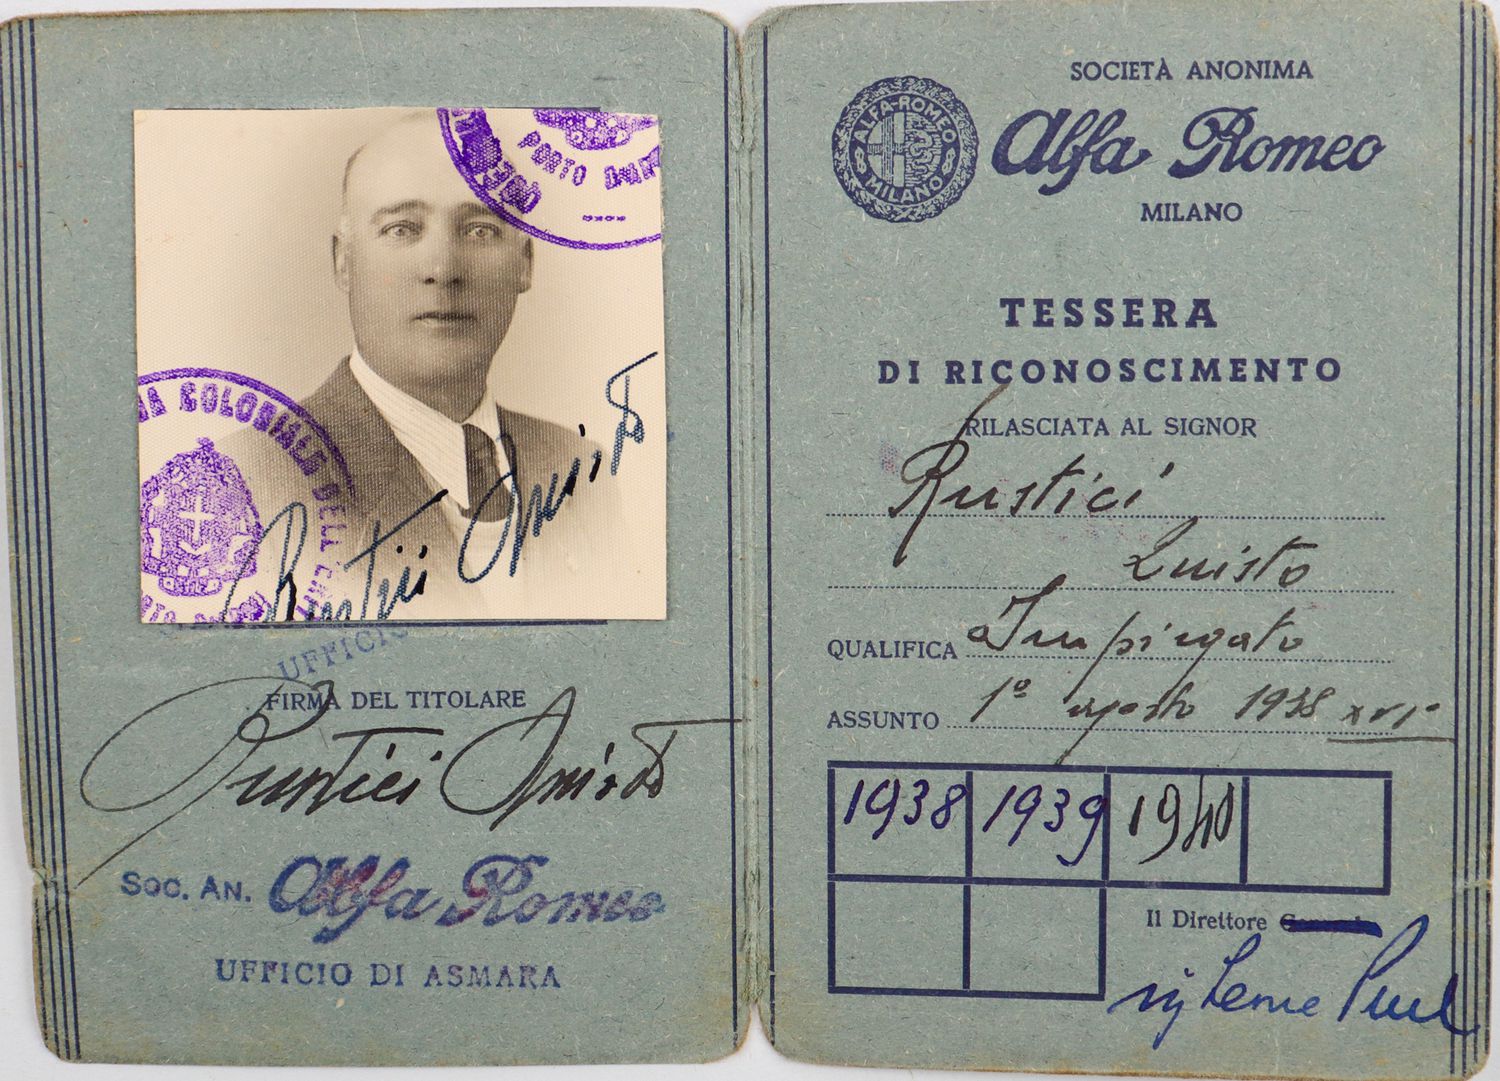 PORTO
IA COLONIALE DELL
Rustici Quisto
UFFICIO
FIRMA DEL TITOLARE
Rustici Quisto
SOC. AN. Alfa Romeo
UFFICIO DI ASMARA
SOCIETÀ ANONIMA
ALFA-ROMEO
MILANO
Alfa Romeo
MILANO
TESSERA
DI RICONOSCIMENTO
RILASCIATA AL SIGNOR
Rustici
Quisto
QUALIFICA Impiegato
ASSUNTO 1º agosto 1938 XVIº
1938 1939 1940
Il Direttore